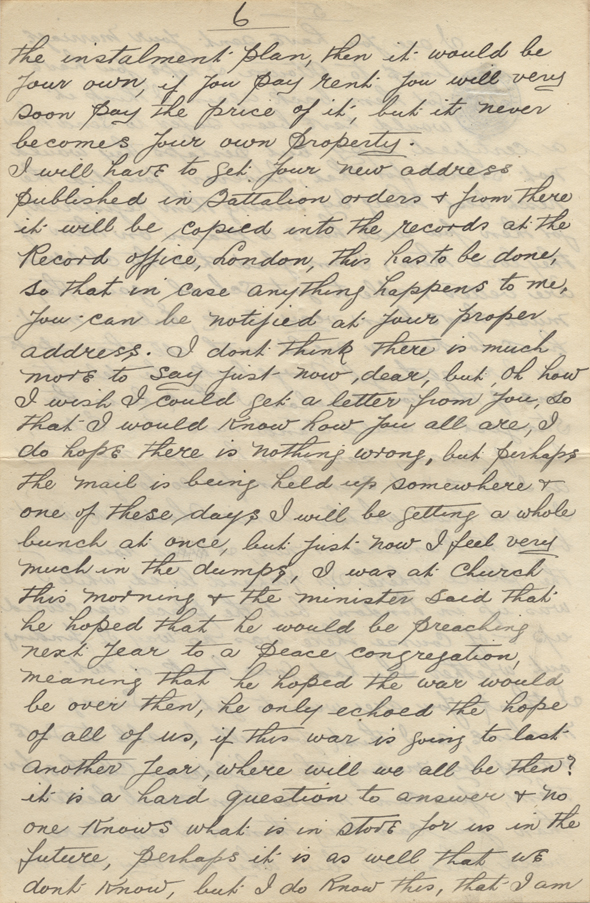 6
the instalment plan, then it would be
your own, if you pay rent you will very
soon pay the price of it, but it never
becomes your own property.
I will have to get your new address
published in Battalion orders & from there
it will be copied into the records at the
Record office, London, this has to be done,
so that in case anything happens to me,
you can be notified at your proper
address. I dont think there is much
more to say just now, dear, but, Oh how
I wish I could get a letter from you, so
that I would know how you all are, I
do hope there is nothing wrong, but perhaps
the mail is being held up somewhere &
one of these days I will be getting a whole
bunch at once, but just now I feel very
much in the dumps, I was at Church
this morning & the minister said that
he hoped that he would be preaching
next year to a peace congregation,
meaning that he hoped the war would
be over then, he only echoed the hope
of all of us, if this war is going to last
another year, where will we all be then?
it is a hard question to answer & no
one knows what is in store for us in the
future, perhaps it is as well that we
dont know, but I do know this, that I am